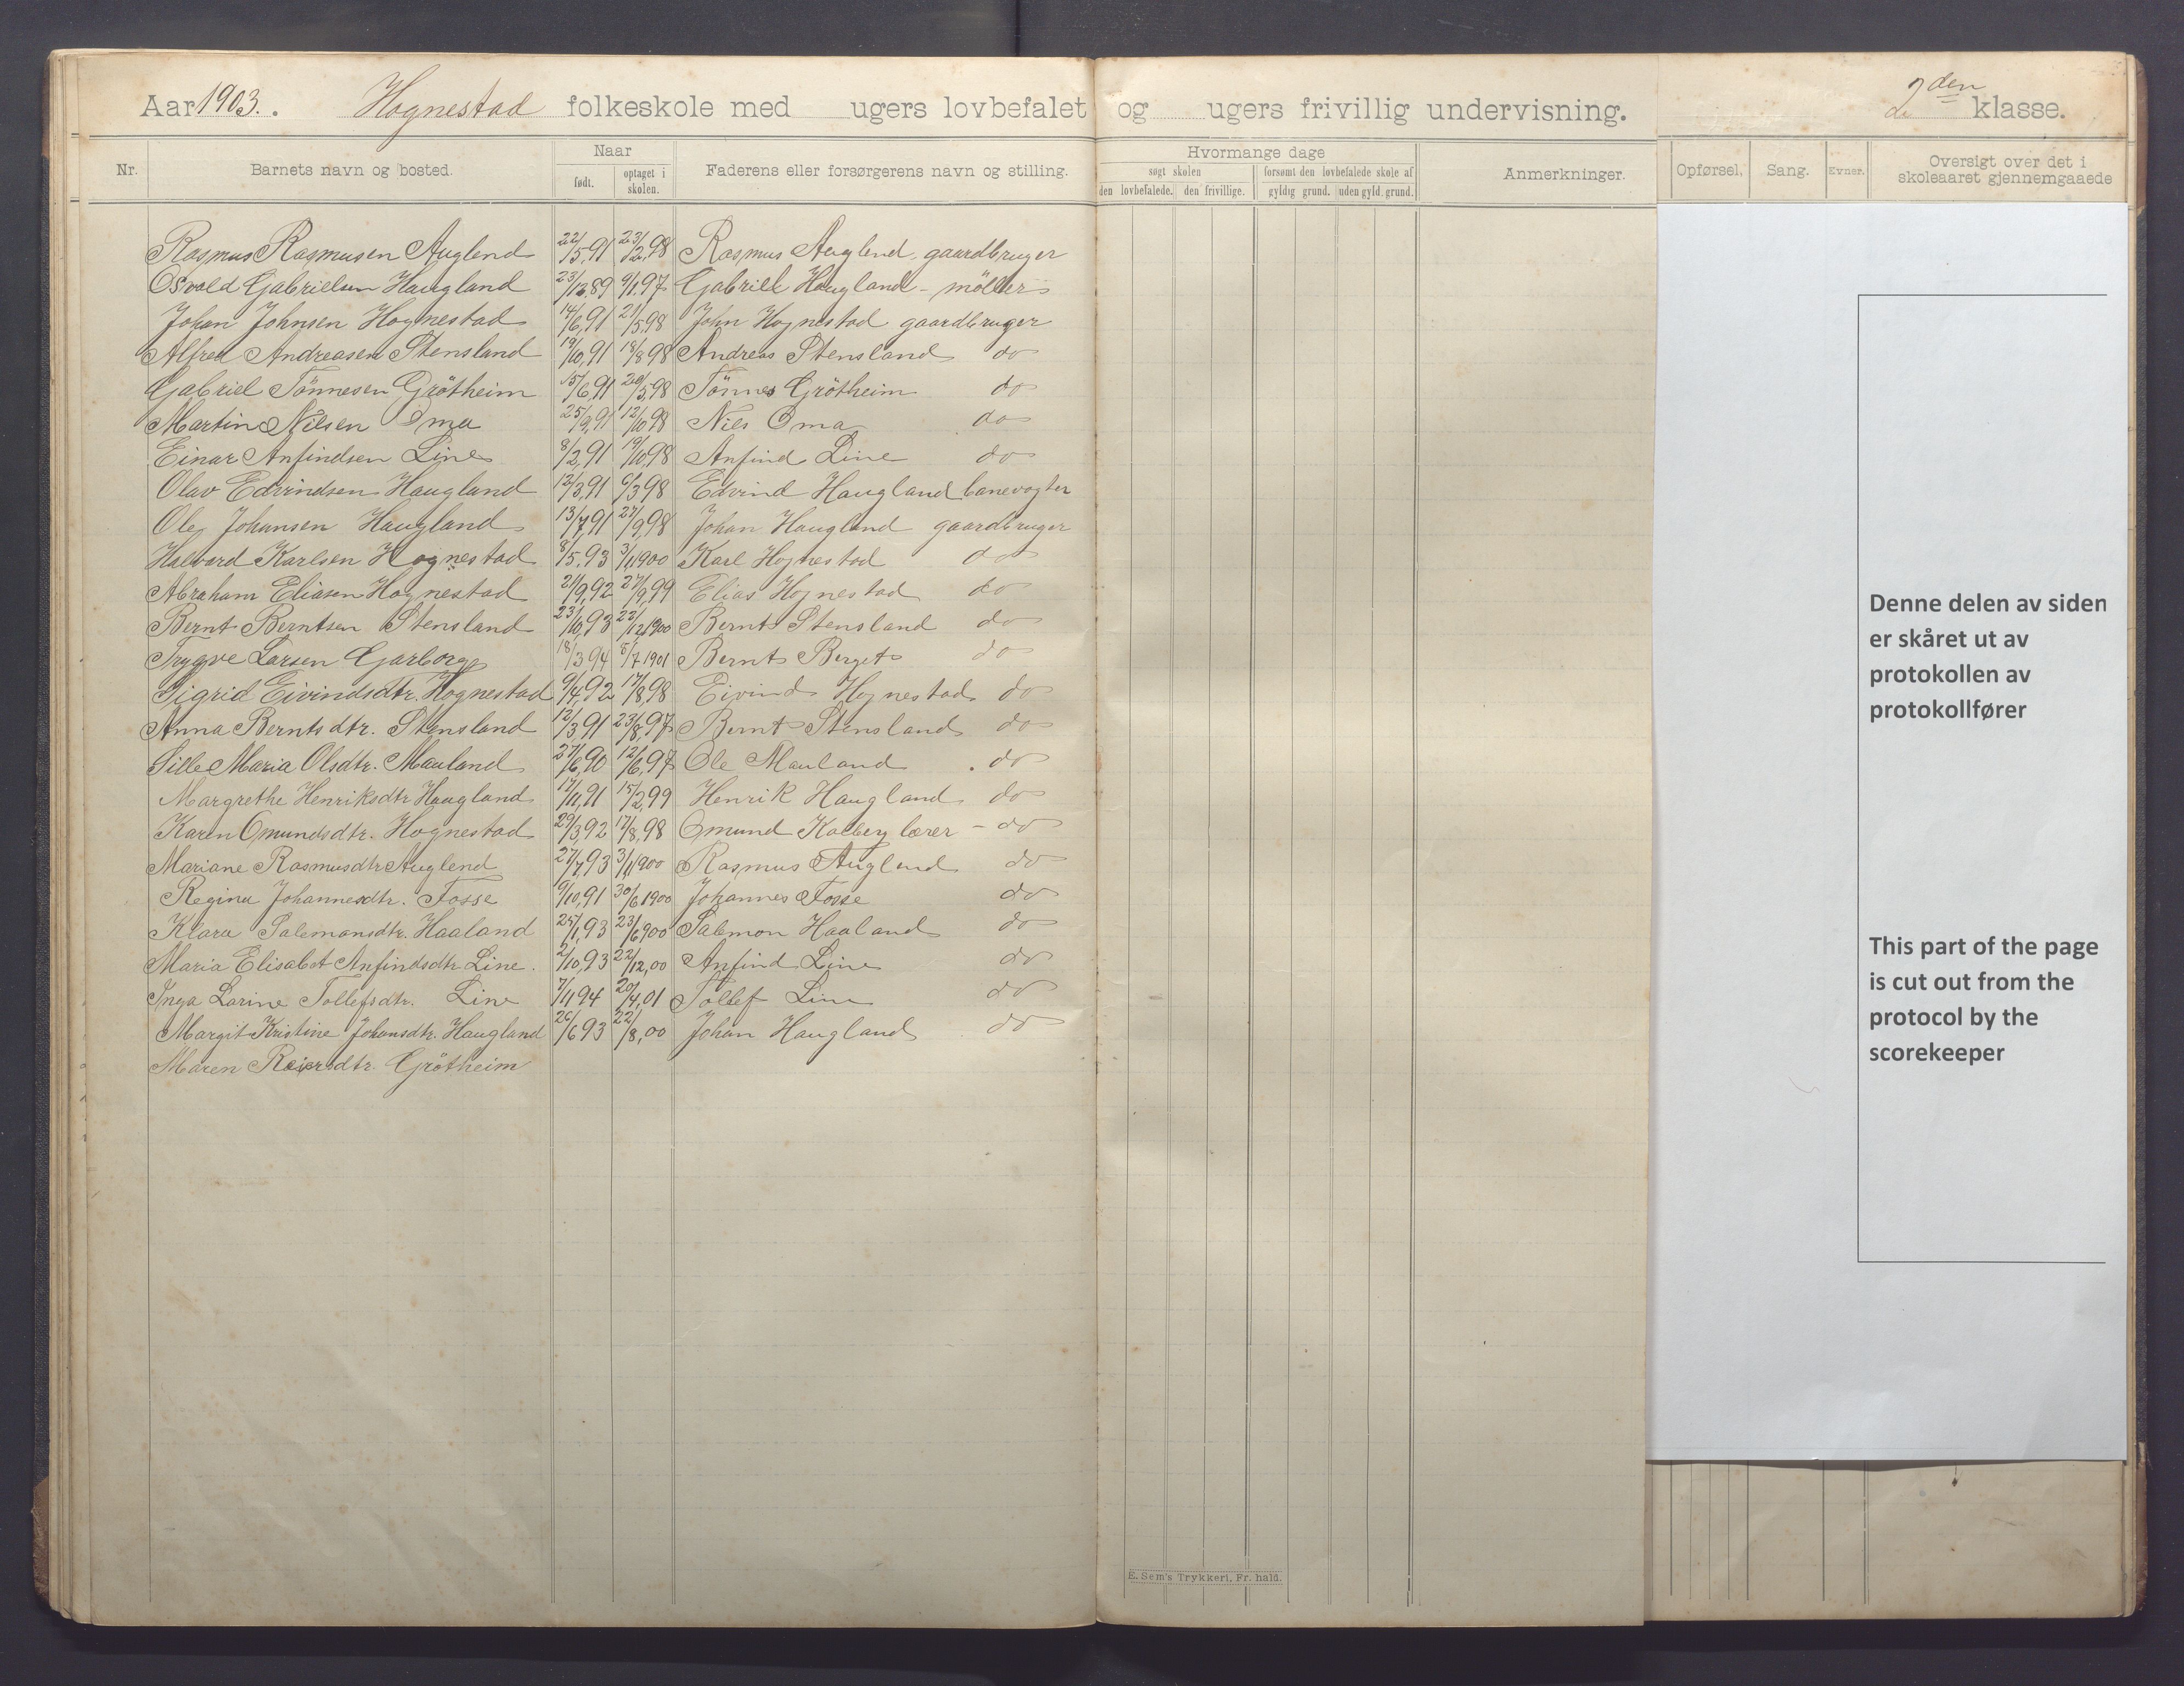 Aar 1903. Hognestad folkeskole med ugers lovbefalet og ugers frivillig undervisning. 2den klasse.
Nr. Barnets navn og bosted. Naar født. optaget i skolen. Faderens eller forsørgerens navn og stilling. Hvormange dage søgt skolen den lovbefalede. den frivillige. forsømt den lovbefalede skole af gyldig grund. uden gyld. grund. Anmerkninger. Opførsel. Sang. Evner. Oversigt over det i skoleaaret gjennemgaaede
Rasmus Rasmusen Auglend 22/5,91 23/2,98 Rasmus Auglend gaardbruger
Osvald Gabrielsen Haugland 23/12,89 9/1,97 Gabriell Haugland - möller
Johan Johnsen Hognestad 14/6,91 21/5,98 John Hognestad gaardbruger
Alfred Andreasen Stensland 19/10,91 18/8 98 Andreas Stensland do
Gabriel Tönnesen Grötheim 15/6,91 20/5,98 Tönnes Grötheim do
Martin Nilsen Oma 25/9,91 12/10 98 Nils Oma do
Einar Anfindsen Line 8/2,91 19/10,98 Anfind Line do
Olav Edvindsen Haugland 12/3,91 6/3 98 Edvind Haugland banevogter
Ole Johansen Haugland 13/7,91 27/9,98 Johan Haugland gaardbruger
Halvard Karlsen Hognestad 8/5,93 3/11900 Karl Hognestad do
Abraham Eliasen Hognestad 21/9,92 27/9,99 Elias Hognestad do
Bernt Berntsen Stensland 23/10,93 22/12 1900 Bernt Stensland do
Trygve Larsen Garborg 18/3 94 5/7 1901 Bernt Berget do
Sigrid Eivindsdtr. Hognestad 9/4,92 17/8,98 Eivind Hognestad do
Anna Berntsdtr. Stensland 12/3,91 23/8,97 Bernt Stensland do
Sille Maria Olsdtr. Mauland 27/6,90 12/6,97 Ole Mauland do
Margrethe Henriksdtr Haugland 17/11,91 15/2,99 Henrik Haugland do
Karen Omundsdtr. Hognestad 29/3,92 17/8,98 Omund Kalberg lærer - do
Mariane Rasmusdtr Auglend 27/7,93 3/11900 Rasmus Auglend do
Regina Johannesdtr. Fosse 9/10,91 30/6 1900 Johannes Fosse do
Klara Salemonsdtr. Haaland 25/1,93 23/6900 Salemon Haaland do
Maria Elisabet Anfindsdtr Line. 2/10,93 22/12,00 Anfind Line do
Inga Larine Tollefsdtr. Line 7/11 94 20/4,01 Tollef Line do
Margit Kristine Johansdtr. Haugland 26/6 93 22/8,00 Johan Haugland do
Maren Reiersdtr. Grötheim
Denne delen av siden
er skåret ut av
protokollen av
protokollfører
This part of the page
is cut out from the
protocol by the
scorekeeper
E. Sem's Trykkeri, Fr. hald.